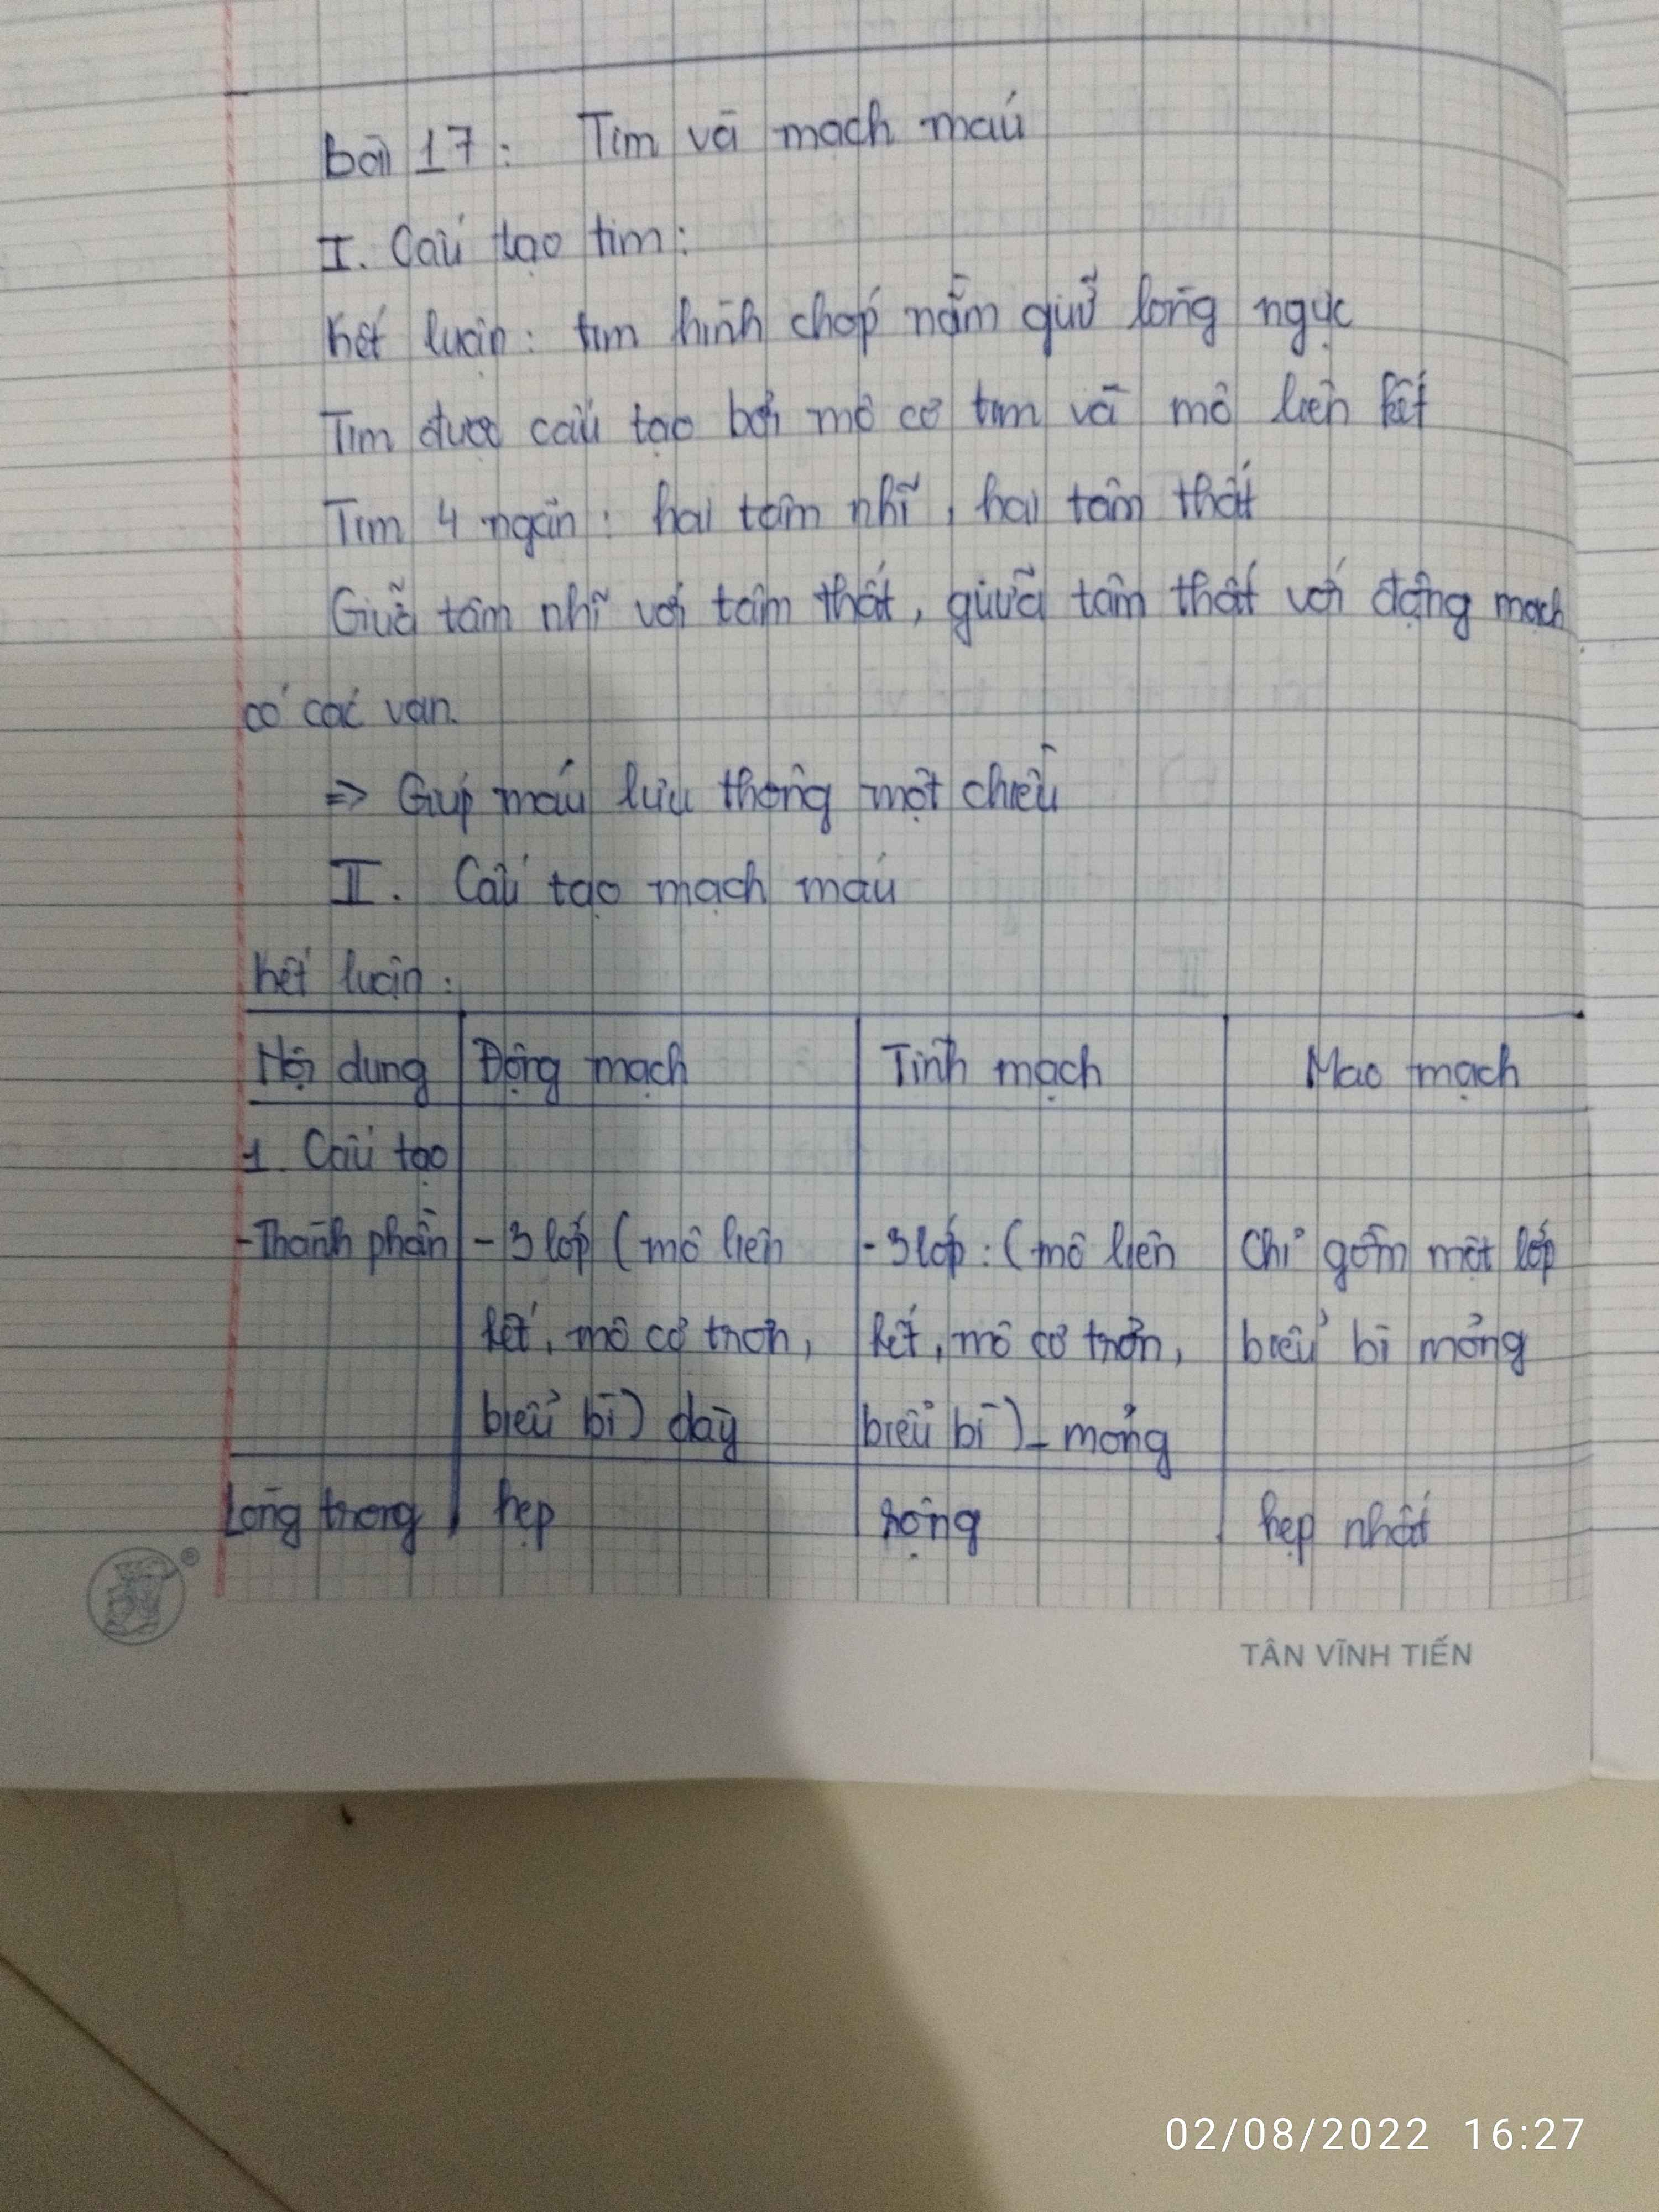 Bài 17: Tim và mạch máu
I. Cấu tạo tim:
Kết luận: tim hình chóp nằm giữ lồng ngực
Tim được cấu tạo bởi mô cơ tim và mô liên kết
Tim 4 ngăn: hai tâm nhĩ, hai tâm thất
Giữa tâm nhĩ với tâm thất, giữa tâm thất với động mạch
có các van.
=> Giúp máu lưu thông một chiều
II. Cấu tạo mạch máu
Kết luận:
Nội dung Động mạch Tĩnh mạch Mao mạch
1. Cấu tạo
-Thành phần - 3 lớp (mô liên - 3 lớp: (mô liên Chỉ gồm một lớp
kết, mô cơ trơn, kết, mô cơ trơn, biểu bì mỏng
biểu bì) dày biểu bì) - mỏng
Lòng trong hẹp rộng hẹp nhất
®
TÂN VĨNH TIẾN
02/08/2022 16:27